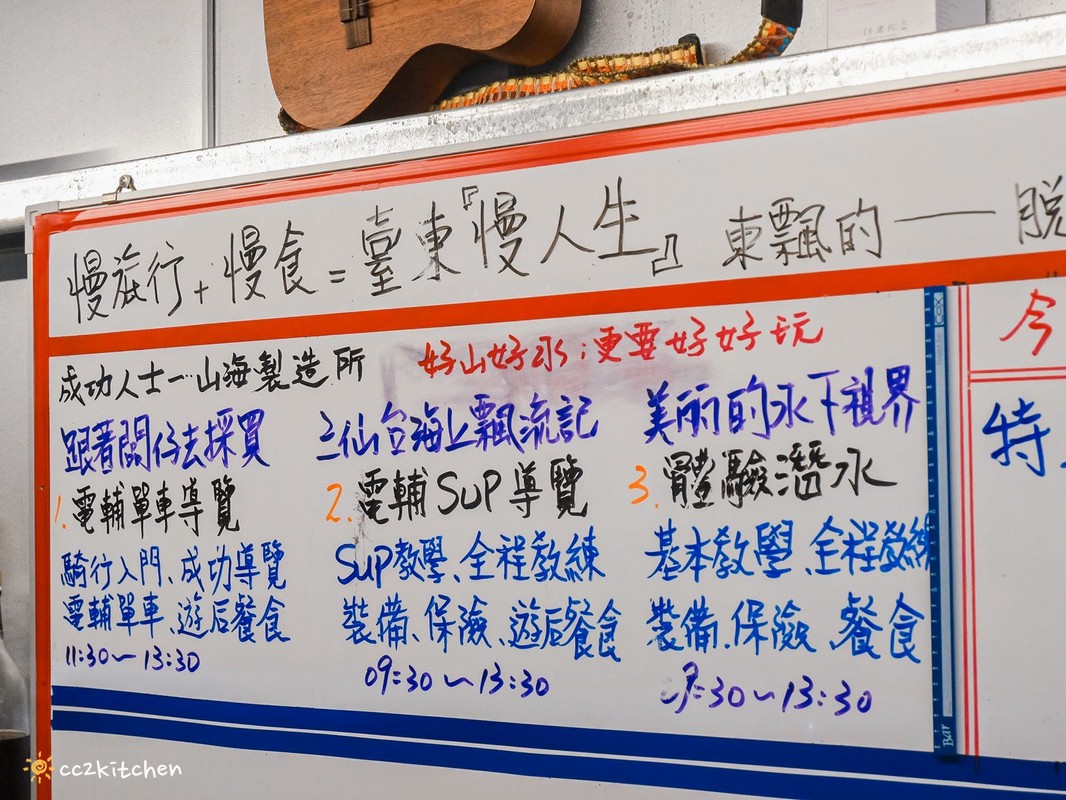 慢旅行+慢食=臺東『慢人生』 東飄的——脫
成功人士—山海製造所 好山好水；更要好好玩
跟著闆仔去採買
1. 電輔單車導覽
騎行入門、成功導覽
電輔單車、遊后餐食
11:30~13:30
三仙台海上飄流記
2. 電輔SUP導覽
SUP教學、全程教練
裝備、保險、遊后餐食
09:30~13:30
美丽的水下視界
3. 體驗潛水
基本教學、全程教練
裝備、保險、餐食
:30~13:30
今
特
Bar
cc2kitchen